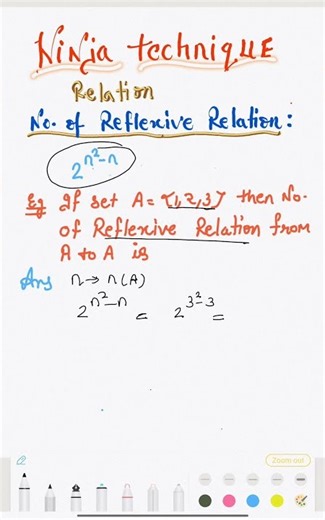 Ninja technique
Relation
No. of Reflexive Relation:
2^{n²-n}
Eg If set A = {1,2,3} then No.
of Reflexive Relation from
A to A is
Ans n → n(A)
2^{n²-n} = 2^{3²-3} =
Zoom out